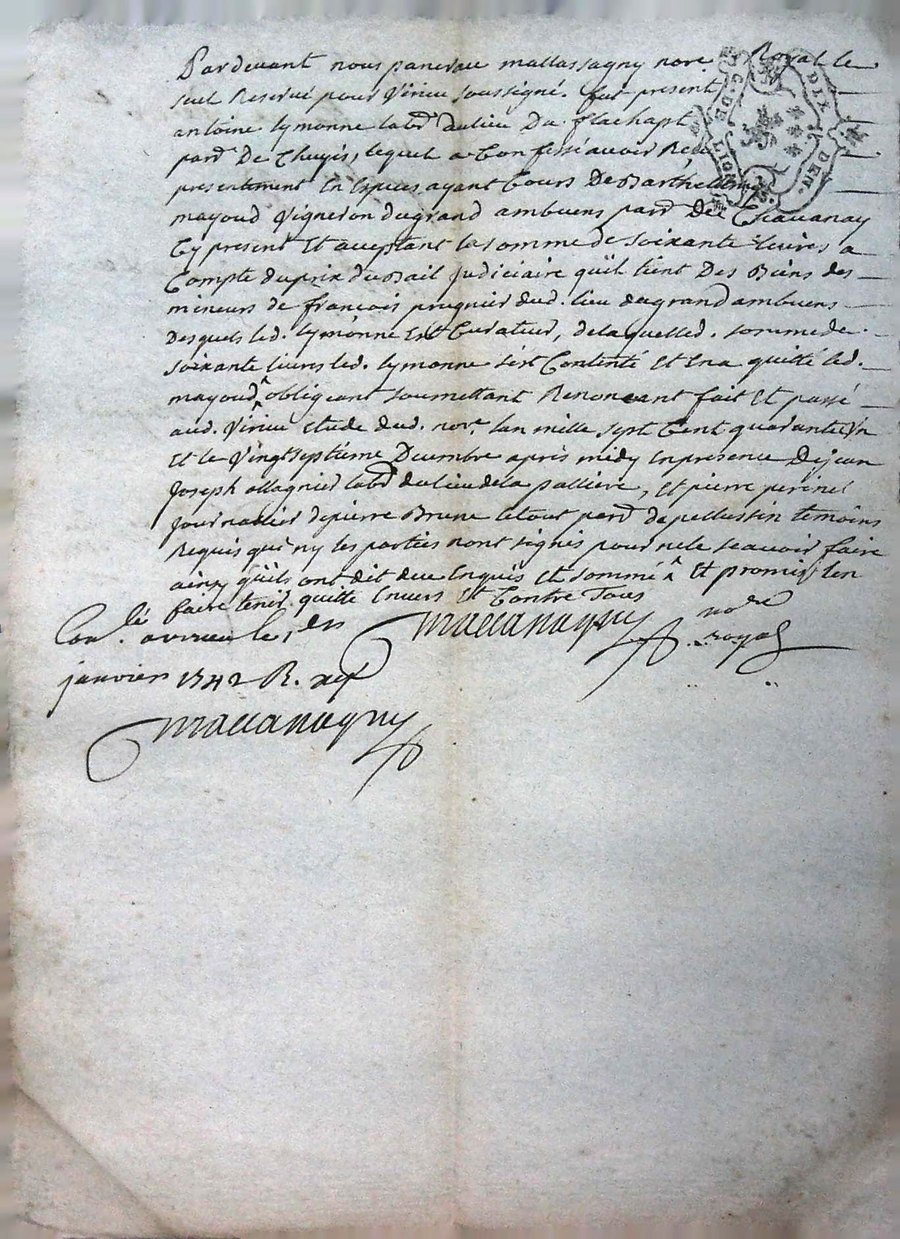 Pardevant nous pancrace mallassagny nore. Royal le
seul Reservé pour Virieu soussigné. fut present
antoine Lymonne labr. du lieu Du flachapt
parse. De Chuyis, lequel a Confessé avoir Reçu
presentement En Especes ayant Cours De Barthellemy
mayoud Vigneron du grand ambuens parse. De Chavanay
Cy present Et acceptant la somme de soixante livres a
Compte du prix du Bail Judiciaire qu'il tient Des Biens des
mineurs de françois prugnier dud. lieu du grand ambuens
Desquels led. Lymonne Est Curateur, de laquelle d. somme de
soixante livres led. Lymonne s'est Contenté Et En a quitté led.
mayoud ^ obligeant soumettant Renonceant fait Et passé
aud. Virieu Etude dud. nore. lan mille sept Cent quarante Un
Et le Vingt septième Decembre après midy En presence De jean
Joseph allagnier labr. du lieu de la Valliere, Et pierre perinel
Journalier de pierre Brune le tout parse. de pellussin temoins
Requis qui ny les parties nont signés pour ne le sçeavoir faire
ainsy qu'ils ont dit due Enquis Et sommé ^ Et promis l'en
faire tenir quitte Envers Et Contre Tous
Conlé. a virieu le
janvier 1742 R.
nore
royal